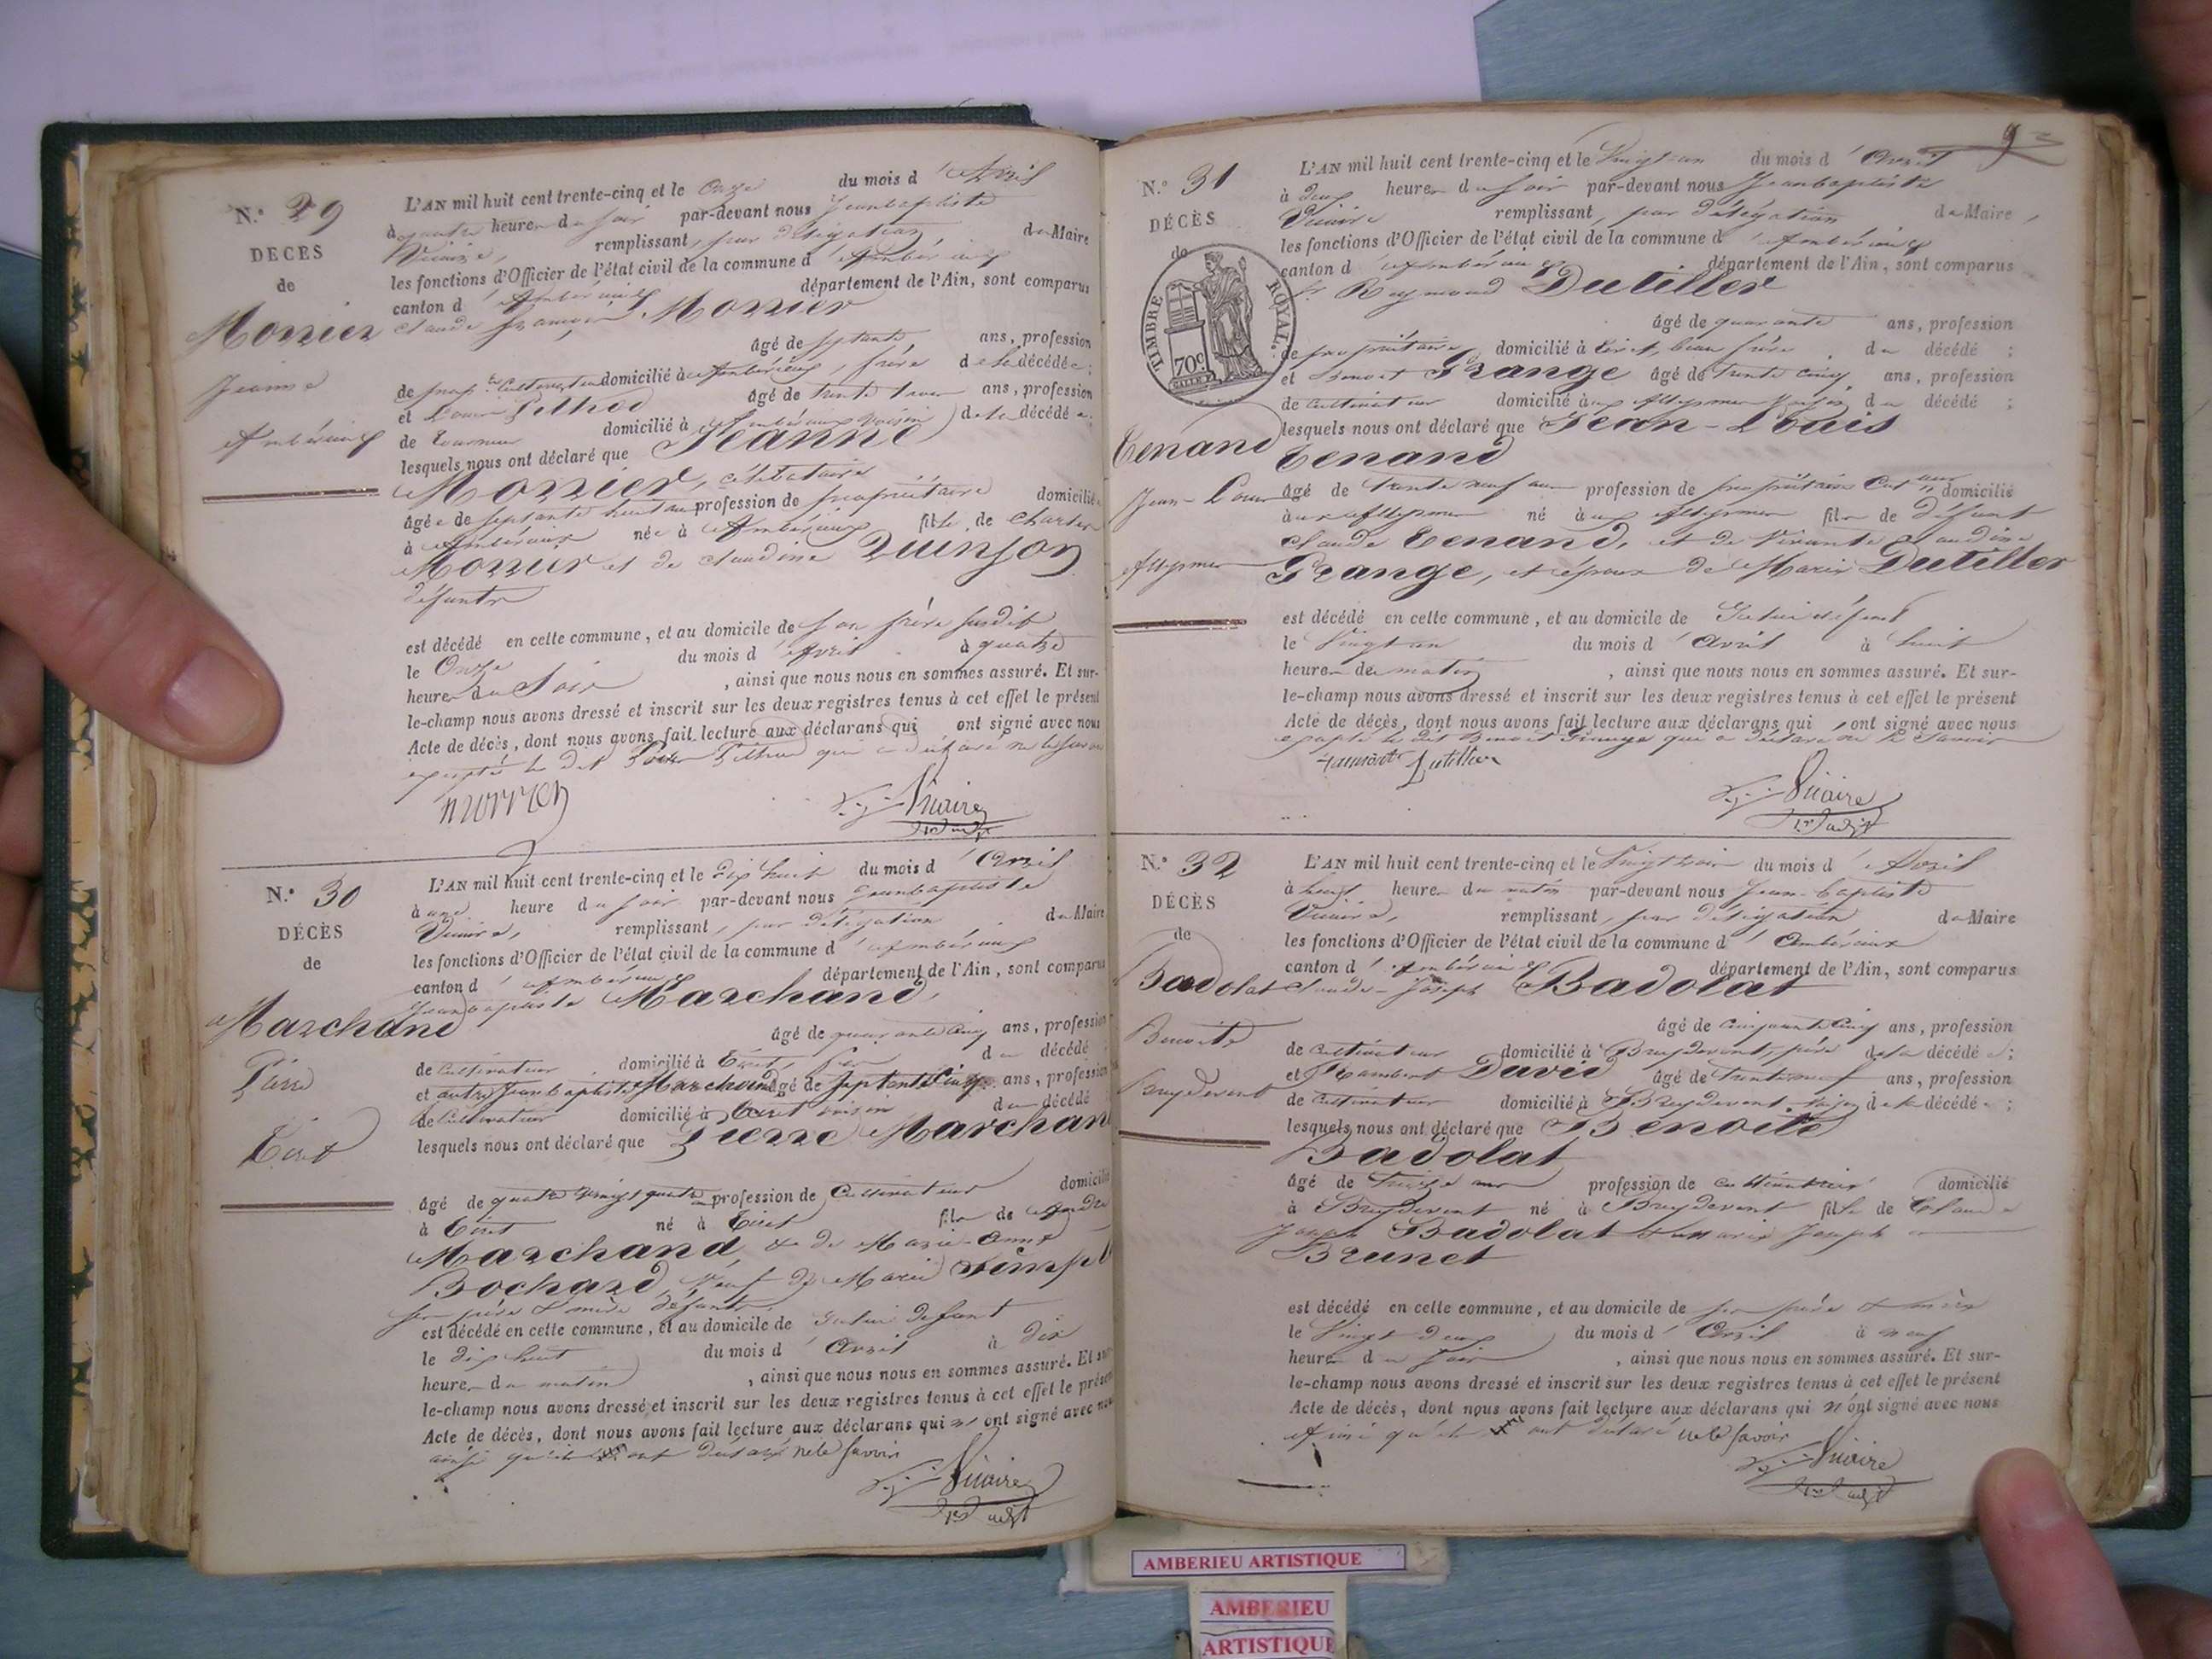 N.° 29
DÉCÈS
de
Morrier
Jeanne
Ambérieux
L'AN mil huit cent trente-cinq et le Onze du mois d'Avril
à quatre heures du soir par-devant nous Jeanbaptiste
Vicaire, remplissant, par délégation, du Maire
les fonctions d'Officier de l'état civil de la commune d'Ambérieux
canton d'Ambérieux département de l'Ain, sont comparus
claude françois Morrier
âgé de septante ans, profession
de prop.re Cultivateur domicilié à Ambérieux, frère de la décédée;
et Louis Pithod âgé de trente trois ans, profession
de tourneur domicilié à Ambérieux voisin de la décédée.
lesquels nous ont déclaré que Jeanne
Morrier, célibataire
âgée de septante huit ans profession de propriétaire domiciliée
à Ambérieux née à Ambérieux fille de Charles
Morrier et de claudine Quinson
défunts
est décédé en cette commune, et au domicile de son frère susdit
le Onze du mois d'Avril à quatre
heures du Soir, ainsi que nous nous en sommes assuré. Et sur-
le-champ nous avons dressé et inscrit sur les deux registres tenus à cet effet le présent
Acte de décès, dont nous avons fait lecture aux déclarans qui ont signé avec nous
excepté le dit Pithod qui a déclaré ne le savoir
morrier
Vicaire
N.° 30
DÉCÈS
de
Marchand
Pierre
Tiret
L'AN mil huit cent trente-cinq et le Dix huit du mois d'Avril
à une heure du soir par-devant nous Jeanbaptiste
Vicaire, remplissant, par délégation du Maire
les fonctions d'Officier de l'état civil de la commune d'Ambérieux
canton d'Ambérieux département de l'Ain, sont comparus
Jeanbaptiste Marchand,
âgé de quarante cinq ans, profession
de Cultivateur domicilié à Tiret, fils du décédé
et autre Jeanbaptiste Marchand âgé de septante cinq ans, profession
de Cultivateur domicilié à Tiret voisin du décédé
lesquels nous ont déclaré que Pierre Marchand
âgé de quatre vingt quatre profession de Cultivateur domicilié
à Tiret né à Tiret fils de André
Marchand & de Marie-Anne
Bochard, Veuf de Marie
ses père & mère défunts.
est décédé en cette commune, et au domicile de Gratien défunt
le dix huit du mois d'Avril à dix
heures du matin, ainsi que nous nous en sommes assuré. Et sur-
le-champ nous avons dressé et inscrit sur les deux registres tenus à cet effet le présent
Acte de décès, dont nous avons fait lecture aux déclarans qui n'ont signé avec nous
ainsi qu'ils ont déclaré ne le savoir
Vicaire
N.° 31
DÉCÈS
de
TIMBRE ROYAL.
70c
Tenand
Jean-Louis
Allymes
L'AN mil huit cent trente-cinq et le Vingt un du mois d'Avril
à deux heures du soir par-devant nous Jeanbaptiste
Vicaire remplissant, par délégation du Maire,
les fonctions d'Officier de l'état civil de la commune d'Ambérieux
canton d'Ambérieux département de l'Ain, sont comparus
Sr Raymond Dutiller
âgé de quarante ans, profession
de propriétaire domicilié à tiret, beau frère du décédé;
et Benoit Grange âgé de trente cinq ans, profession
de Cultivateur domicilié aux Allymes voisin du décédé;
lesquels nous ont déclaré que Jean-Louis
Tenand
âgé de trente neuf ans profession de propriétaire Cult.eur domicilié
aux Allymes né aux Allymes fils de défunt
claude Tenand, et de Vivante claudine
Grange, et époux de Marie Dutiller
est décédé en cette commune, et au domicile de défunt
le Vingt un du mois d'Avril à huit
heures du matin, ainsi que nous nous en sommes assuré. Et sur-
le-champ nous avons dressé et inscrit sur les deux registres tenus à cet effet le présent
Acte de décès, dont nous avons fait lecture aux déclarans qui ont signé avec nous
excepté le dit Benoit Grange qui a déclaré ne le Savoir
Dutiller
Vicaire
N.° 32
DÉCÈS
de
Badolat
Benoite
Breydevent
L'AN mil huit cent trente-cinq et le Vingt trois du mois d'Avril
à heures du matin par-devant nous Jean-baptiste
Vicaire, remplissant, par délégation du Maire
les fonctions d'Officier de l'état civil de la commune d'Ambérieux
canton d'Ambérieux département de l'Ain, sont comparus
Claude-Joseph Badolat
âgé de Cinquante Cinq ans, profession
de Cultivateur domicilié à Breydevent, père de la décédée;
et Rambert David âgé de trente neuf ans, profession
de Cultivateur domicilié à Breydevent voisin de la décédée;
lesquels nous ont déclaré que Benoite
Badolat
âgé de treize ans profession de cultivatrice domicilié
à Breydevent né à Breydevent fille de Claude
Joseph Badolat & Marie Joseph
Brunet
est décédé en cette commune, et au domicile de ses père & mère
le Vingt deux du mois d'Avril à neuf
heures du soir, ainsi que nous nous en sommes assuré. Et sur-
le-champ nous avons dressé et inscrit sur les deux registres tenus à cet effet le présent
Acte de décès, dont nous avons fait lecture aux déclarans qui n'ont signé avec nous
Ainsi qu'ils ont déclaré ne le savoir
Vicaire
AMBERIEU ARTISTIQUE
AMBERIEU
ARTISTIQUE